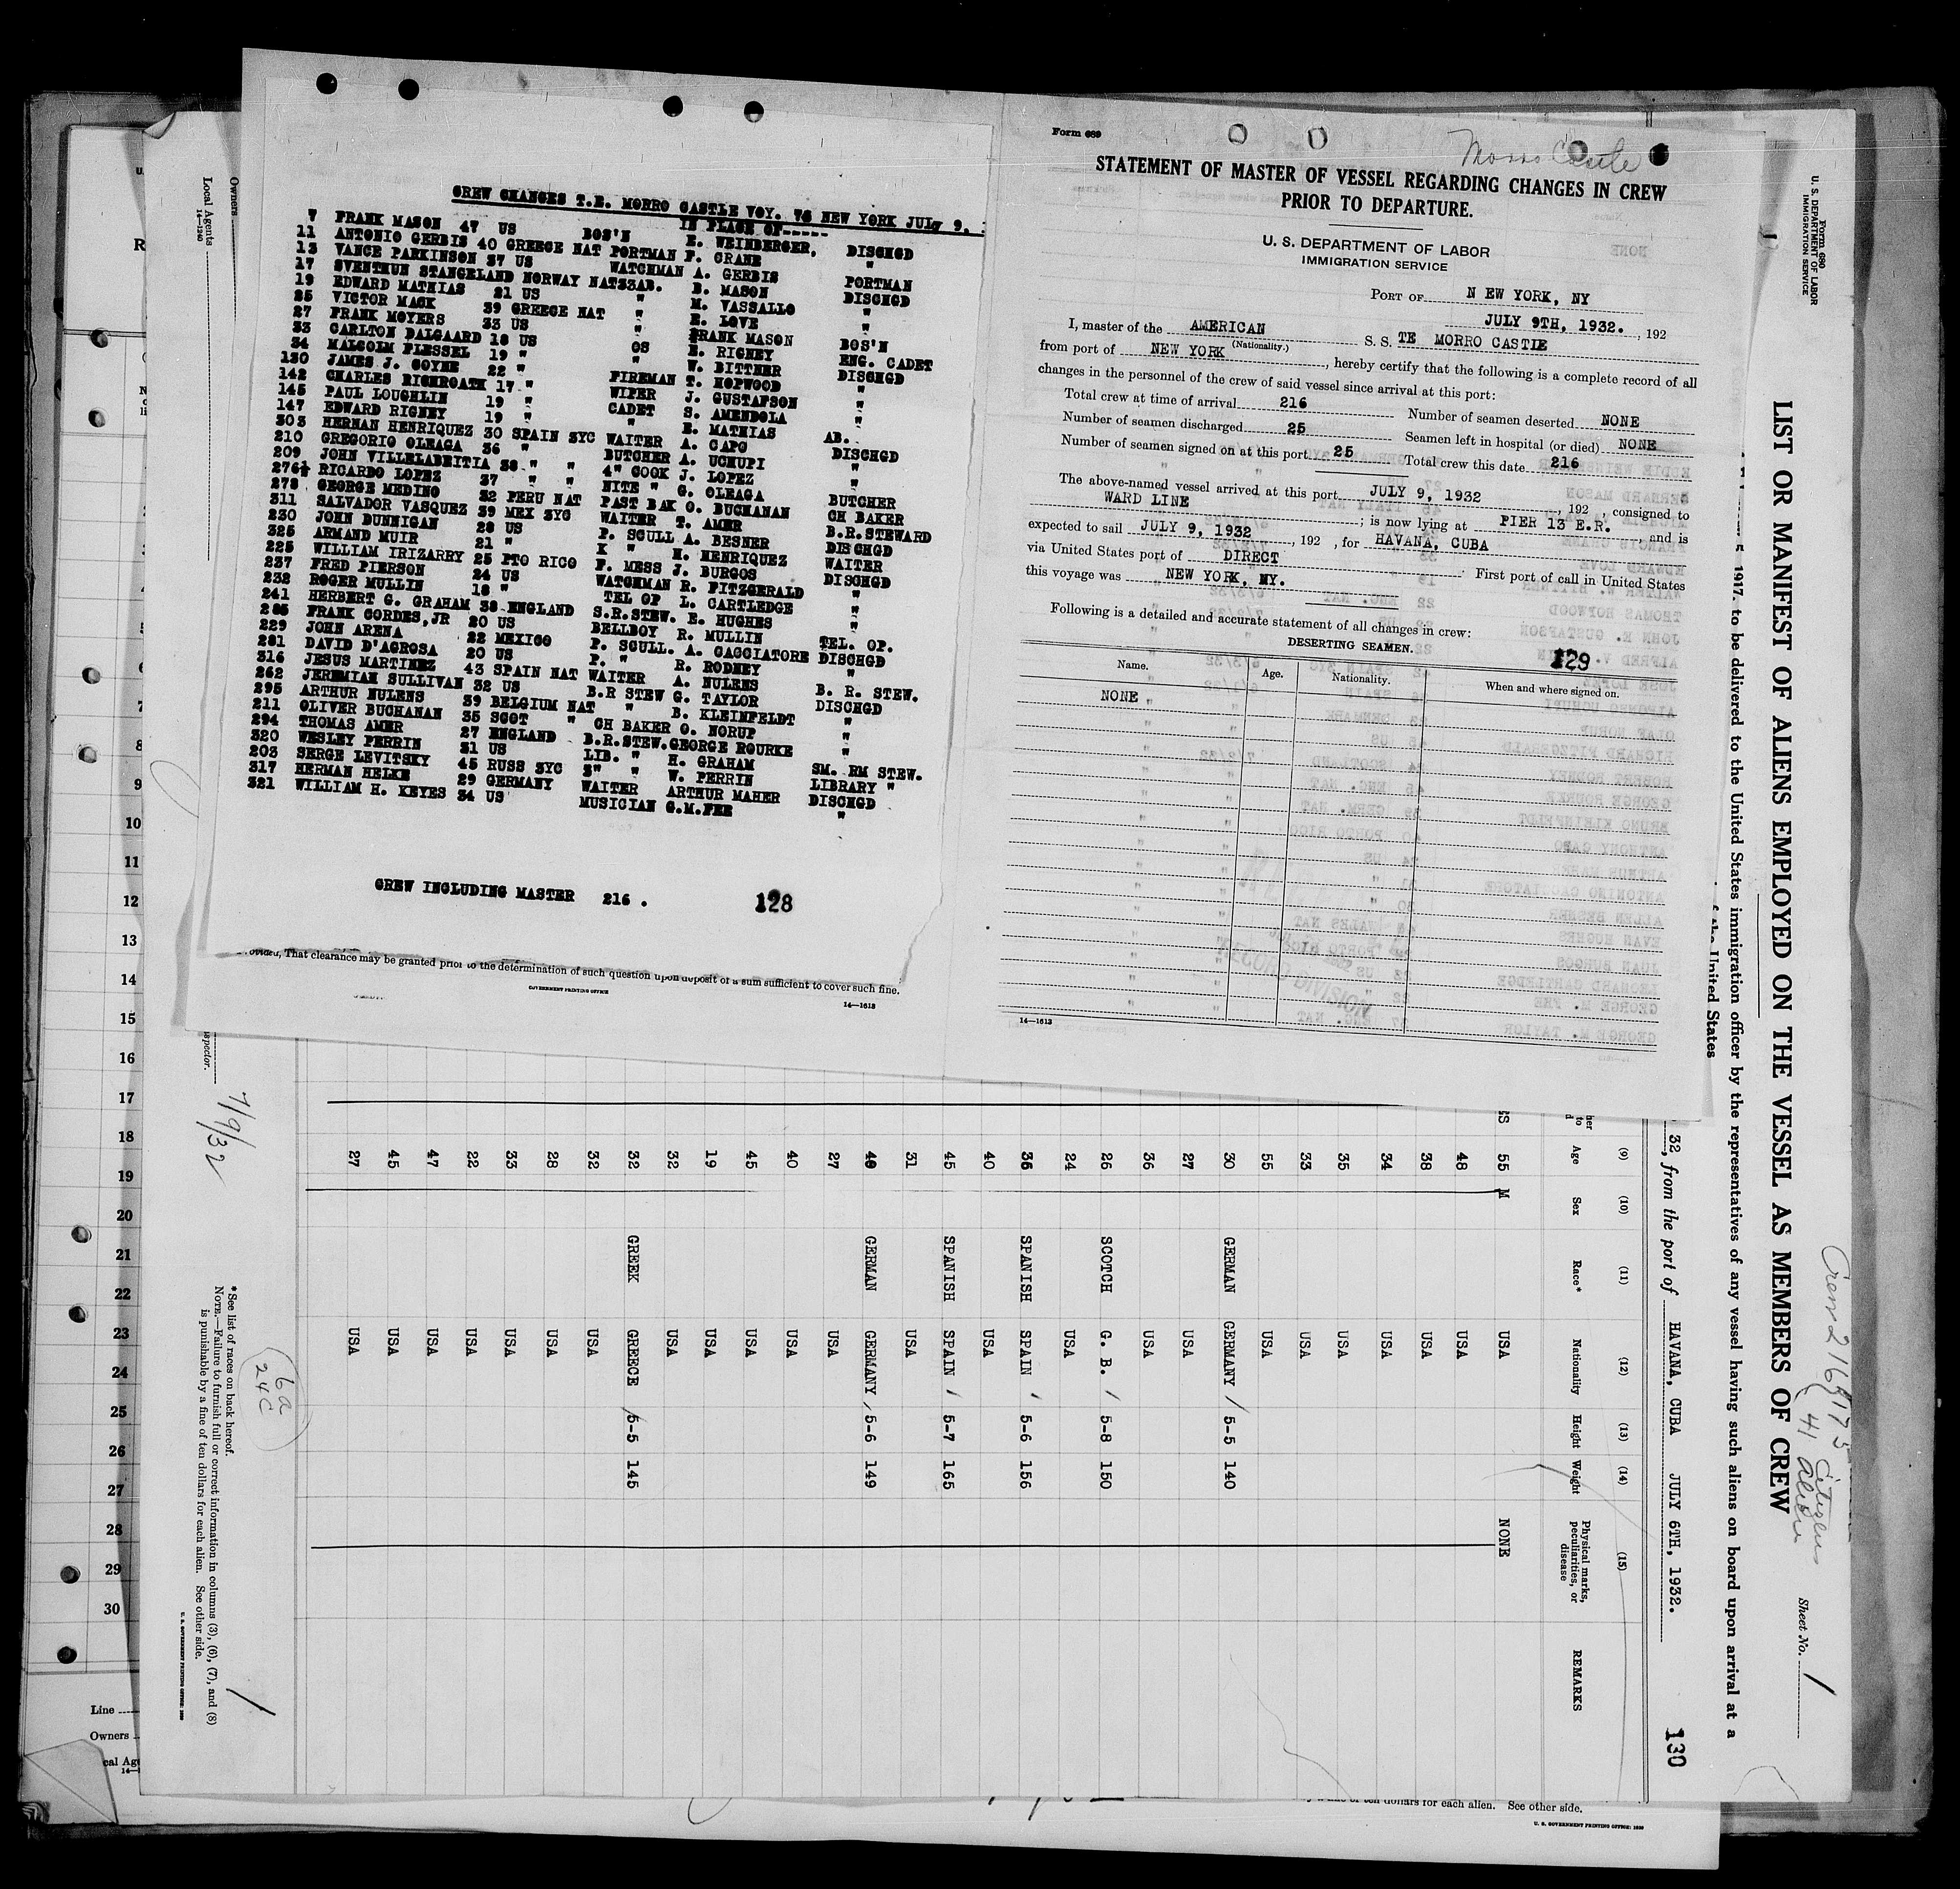 CREW CHANGES T.E. MORRO CASTLE VOY. 76 NEW YORK JULY 9,
IN PLACE OF-----
7 FRANK MASON 47 US BOS'N E. WEINBERGER, DISCHGD
11 ANTONIO GERBIS 40 GREECE NAT PORTMAN F. CRANE "
13 VANCE PARKINSON 37 US WATCHMAN A. GERBIS PORTMAN
17 SVENTHUN STANGELAND NORWAY NAT33AB. B. MASON DISCHGD
19 EDWARD MATHIAS 21 US " M. VASSALLO "
25 VICTOR MACK 39 GREECE NAT " E. LOVE "
27 FRANK MOYERS 33 US " FRANK MASON BOS'N
33 CARLTON DALGAARD 18 US OS E. RIGNEY ENG. CADET
34 MALCOLM FLESSEL 19 " " W. BITTNER DISCHGD
130 JAMES J. COYNE 22 " FIREMAN T. HOPWOOD "
142 CHARLES RICHROATH 17 " WIPER J. GUSTAFSON "
145 PAUL LOUGHLIN 19 " CADET S. AMENDOLA "
147 EDWARD RIGNEY 19 " " E. MATHIAS AB.
303 HERNAN HENRIQUEZ 30 SPAIN 3YC WAITER A. CAPO DISCHGD
210 GREGORIO OLEAGA 36 " " BUTCHER A. UCHUPI "
209 JOHN VILLELABEITIA 38 " " 4" COOK J. LOPEZ "
276½ RICARDO LOPEZ 37 " " NITE " G. OLEAGA BUTCHER
273 GEORGE MEDINO 32 PERU NAT PAST BAK O. BUCHANAN CH BAKER
311 SALVADOR VASQUEZ 39 MEX 3YC WAITER T. AMER B.R.STEWARD
230 JOHN DUNNIGAN 28 US P. SCULL A. BESNER DISCHGD
325 ARMAND MUIR 21 " K " H. HENRIQUEZ WAITER
225 WILLIAM IRIZARRY 25 PTO RICO F. MESS J. BURGOS DISCHGD
237 FRED PIERSON 24 US WATCHMAN R. FITZGERALD "
232 ROGER MULLIN 18 " TEL OP L. CARTLEDGE "
241 HERBERT G. GRAHAM 38 ENGLAND S.R.STEW. E. HUGHES "
285 FRANK CORDES,JR 20 US BELLBOY R. MULLIN TEL. OP.
229 JOHN ARENA 22 MEXICO P. SCULL. A. CACCIATORE DISCHGD
281 DAVID D'AGROSA 20 US P. " R. RODNEY "
316 JESUS MARTINEZ 43 SPAIN NAT WAITER A. NULENS B. R. STEW.
262 JEREMIAH SULLIVAN 32 US B.R STEW G. TAYLOR DISCHGD
295 ARTHUR NULENS 39 BELGIUM NAT " B. KLEINFELDT "
211 OLIVER BUCHANAN 35 SCOT " CH BAKER O. NORUP "
294 THOMAS AMER 27 ENGLAND B.R.STEW.GEORGE ROURKE "
320 WESLEY PERRIN 31 US LIB. " H. GRAHAM SM. RM STEW.
203 SERGE LEVITSKY 45 RUSS 3YC 3" " W. PERRIN LIBRARY "
317 HERMAN HELKE 29 GERMANY WAITER ARTHUR MAHER DISCHGD
321 WILLIAM H. KEYES 34 US MUSICIAN G.M.FEE "
CREW INCLUDING MASTER 216 . 128
That clearance may be granted prior to the determination of such question upon deposit of a sum sufficient to cover such fine.
GOVERNMENT PRINTING OFFICE
14—1613
Form 689
Morro Castle
STATEMENT OF MASTER OF VESSEL REGARDING CHANGES IN CREW
PRIOR TO DEPARTURE.
U. S. DEPARTMENT OF LABOR
IMMIGRATION SERVICE
PORT OF N EW YORK, NY
JULY 9TH, 1932. , 192
I, master of the AMERICAN S. S. TE MORRO CASTlE
(Nationality.)
from port of NEW YORK , hereby certify that the following is a complete record of all
changes in the personnel of the crew of said vessel since arrival at this port:
Total crew at time of arrival 216 Number of seamen deserted NONE
Number of seamen discharged 25 Seamen left in hospital (or died) NONE
Number of seamen signed on at this port 25 Total crew this date 216
The above-named vessel arrived at this port JULY 9, 1932 , 192 , consigned to
WARD LINE ; is now lying at PIER 13 E.R. , and is
expected to sail JULY 9, 1932 , 192 , for HAVANA, CUBA
via United States port of DIRECT . First port of call in United States
this voyage was NEW YORK, NY.
Following is a detailed and accurate statement of all changes in crew:
DESERTING SEAMEN. 129
Name. Age. Nationality. When and where signed on.
NONE
14—1613
Form 680
U. S. DEPARTMENT OF LABOR
IMMIGRATION SERVICE
LIST OR MANIFEST OF ALIENS EMPLOYED ON THE VESSEL AS MEMBERS OF CREW
Crew 216 { 175 citizens
41 aliens
Sheet No. 1
1917, to be delivered to the United States immigration officer by the representatives of any vessel having such aliens on board upon arrival at a
of the United States
32, from the port of HAVANA, CUBA JULY 6TH, 1932. 130
(9) (10) (11) (12) (13) (14) (15)
Age Sex Race* Nationality Height Weight Physical marks, peculiarities, or disease REMARKS
55 M USA NONE
48 USA
38 USA
34 USA
35 USA
33 USA
55 USA
30 GERMAN GERMANY / 5-5 140
27 USA
36 USA
26 SCOTCH G. B. / 5-8 150
24 USA
36 SPANISH SPAIN / 5-6 156
40 USA
45 SPANISH SPAIN / 5-7 165
31 USA
40 GERMAN GERMANY / 5-6 149
27 USA
40 USA
45 USA
19 USA
32 USA
32 GREEK GREECE / 5-5 145
32 USA
28 USA
33 USA
22 USA
47 USA
45 USA
27 USA
* See list of races on back hereof.
NOTE.—Failure to furnish full or correct information in columns (3), (6), (7), and (8)
is punishable by a fine of ten dollars for each alien. See other side.
U. S. GOVERNMENT PRINTING OFFICE: 1930
6a
24c
1
7/9/32
Owners
Local Agents
14—1240
7
8
9
10
11
12
13
14
15
16
17
18
19
20
21
22
23
24
25
26
27
28
29
30
Line
Owners
ten dollars for each alien. See other side.
U. S. GOVERNMENT PRINTING OFFICE: 1930